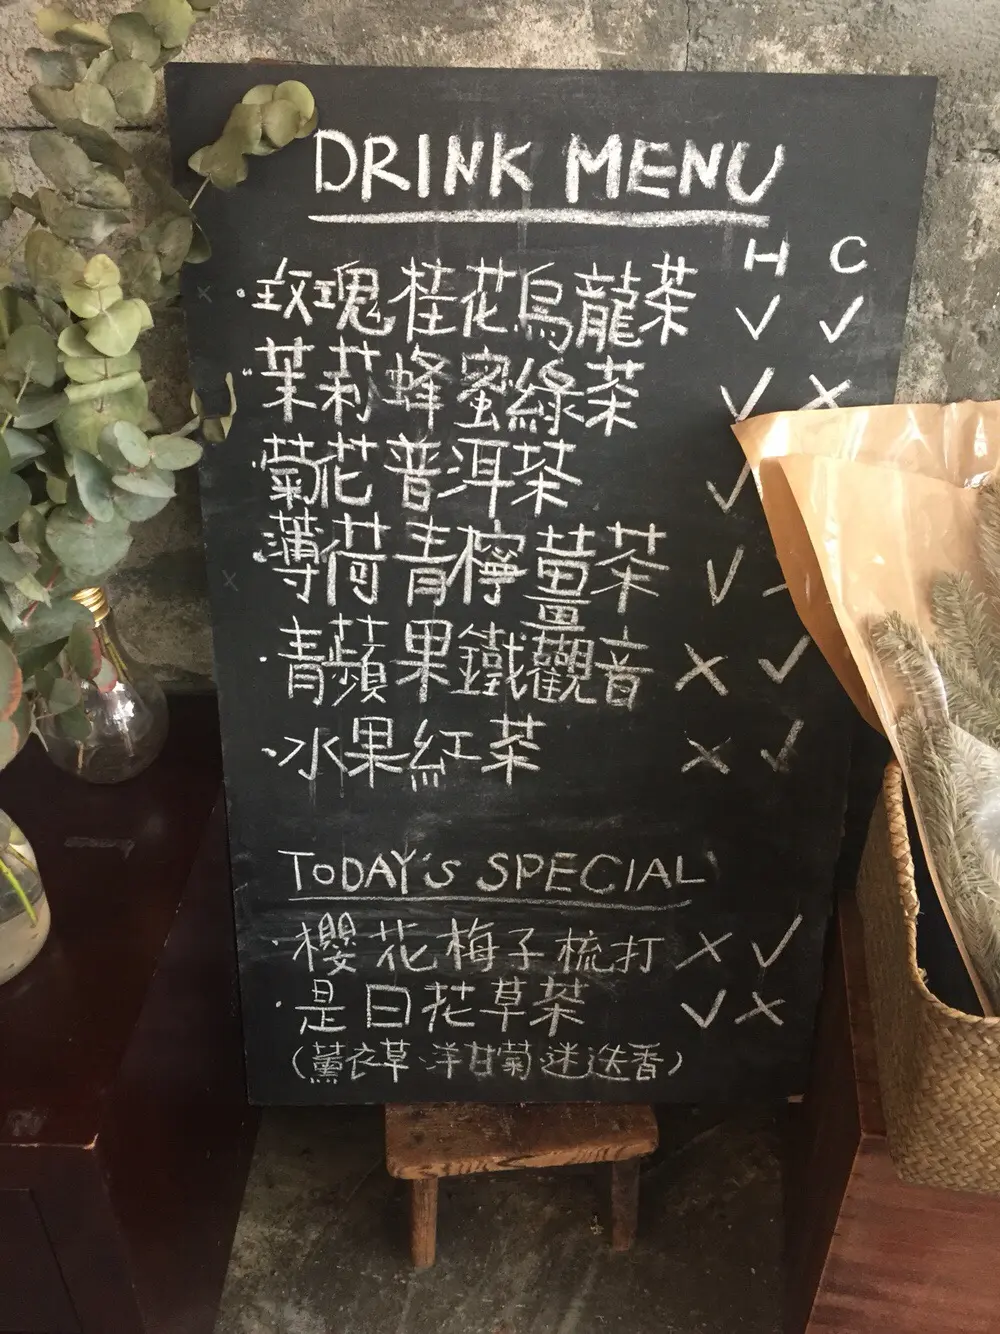 DRINK MENU
H C
·玫瑰桂花烏龍茶 ✓ ✓
·茉莉蜂蜜綠茶 ✓ ✗
·菊花普洱茶 ✓
·薄荷青檸薑茶 ✓
·青蘋果鐵觀音 ✗ ✓
·水果紅茶 ✗ ✓
TODAY'S SPECIAL
·櫻花梅子梳打 ✗ ✓
·是日花草茶 ✓ ✗
(薰衣草 洋甘菊 迷迭香)